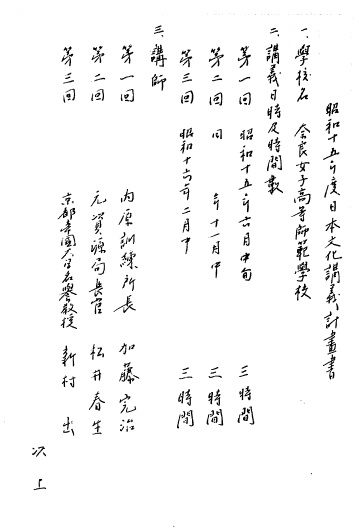 昭和十五年度日本文化講義計畫書
一、學校名　奈良女子高等師範學校
二、講義日時及時間數
第一回　昭和十五年六月中旬　三時間
第二回　同　年十一月中　三時間
第三回　昭和十六年二月中　三時間
三、講師
第一回　内原訓練所長　加藤完治
第二回　元資源局長官　松井春生
第三回　京都帝國大学名譽教授　新村　出
以上